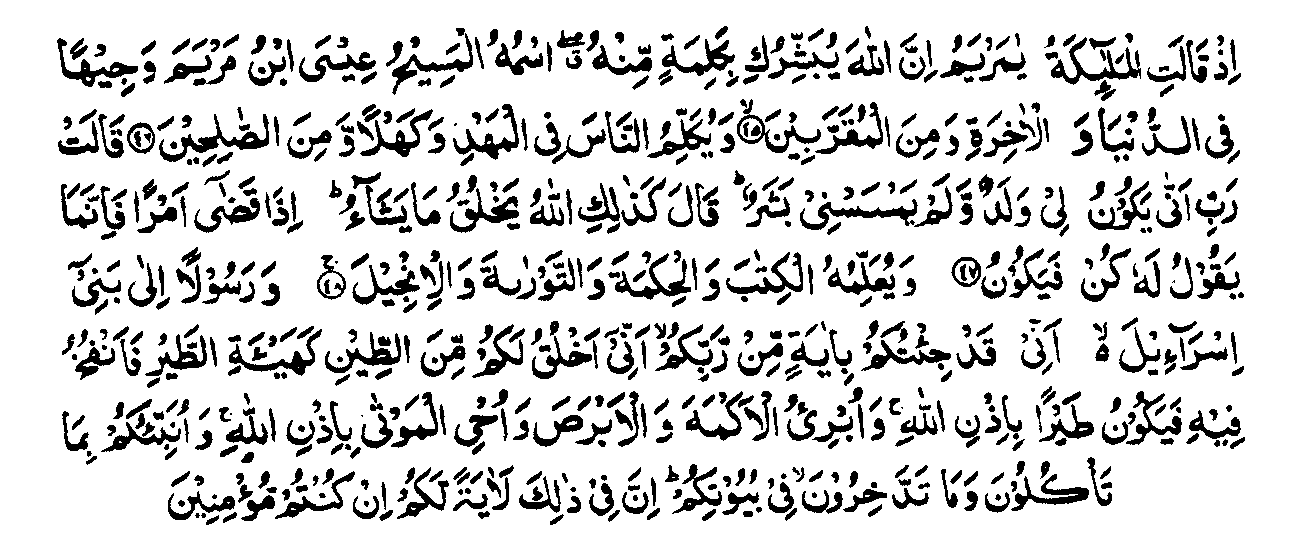 اِذْ قَالَتِ الْمَلٰٓئِكَةُ يٰمَرْيَمُ اِنَّ اللّٰهَ يُبَشِّرُكِ بِكَلِمَةٍ مِّنْهُ ۖۗ اسْمُهُ الْمَسِيْحُ عِيْسَى ابْنُ مَرْيَمَ وَجِيْهًا
فِى الدُّنْيَا وَ الْاٰخِرَةِ وَمِنَ الْمُقَرَّبِيْنَۙ ﴿۴۵﴾ وَ يُكَلِّمُ النَّاسَ فِى الْمَهْدِ وَ كَهْلًا وَّ مِنَ الصّٰلِحِيْنَ ﴿۴۶﴾ قَالَتْ
رَبِّ اَنّٰى يَكُوْنُ لِىْ وَلَدٌ وَّ لَمْ يَمْسَسْنِىْ بَشَرٌ ؕ قَالَ كَذٰلِكِ اللّٰهُ يَخْلُقُ مَا يَشَآءُ ؕ اِذَا قَضٰٓى اَمْرًا فَاِنَّمَا
يَقُوْلُ لَهٗ كُنْ فَيَكُوْنُ ﴿۴۷﴾ وَيُعَلِّمُهُ الْكِتٰبَ وَ الْحِكْمَةَ وَ التَّوْرٰىةَ وَ الْاِنْجِيْلَ ۚ ﴿۴۸﴾ وَ رَسُوْلًا اِلٰى بَنِىْٓ
اِسْرَآءِيْلَ ۙ اَنِّىْ قَدْ جِئْتُكُمْ بِاٰيَةٍ مِّنْ رَّبِّكُمْ ۙ اَنِّىْٓ اَخْلُقُ لَكُمْ مِّنَ الطِّيْنِ كَهَيْـَٔةِ الطَّيْرِ فَاَنْفُخُ
فِيْهِ فَيَكُوْنُ طَيْرًا بِاِذْنِ اللّٰهِ ۚ وَ اُبْرِئُ الْاَكْمَهَ وَ الْاَبْرَصَ وَ اُحْىِ الْمَوْتٰى بِاِذْنِ اللّٰهِ ۚ وَ اُنَبِّئُكُمْ بِمَا
تَاْكُلُوْنَ وَ مَا تَدَّخِرُوْنَ ۙ فِىْ بُيُوْتِكُمْ ؕ اِنَّ فِىْ ذٰلِكَ لَاٰيَةً لَّكُمْ اِنْ كُنْتُمْ مُّؤْمِنِيْنَ